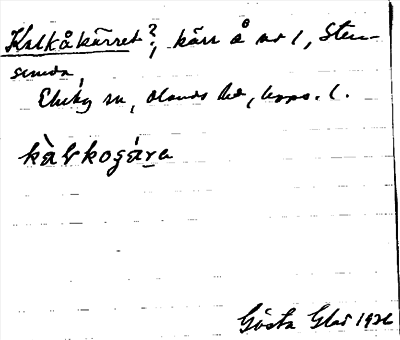 Kalkåkärret?, kärr å nr 1, Sten-
sunda,
Ekeby sn, Olands hd, Upps. l.
kàlkogára
Gösta Glas 1926